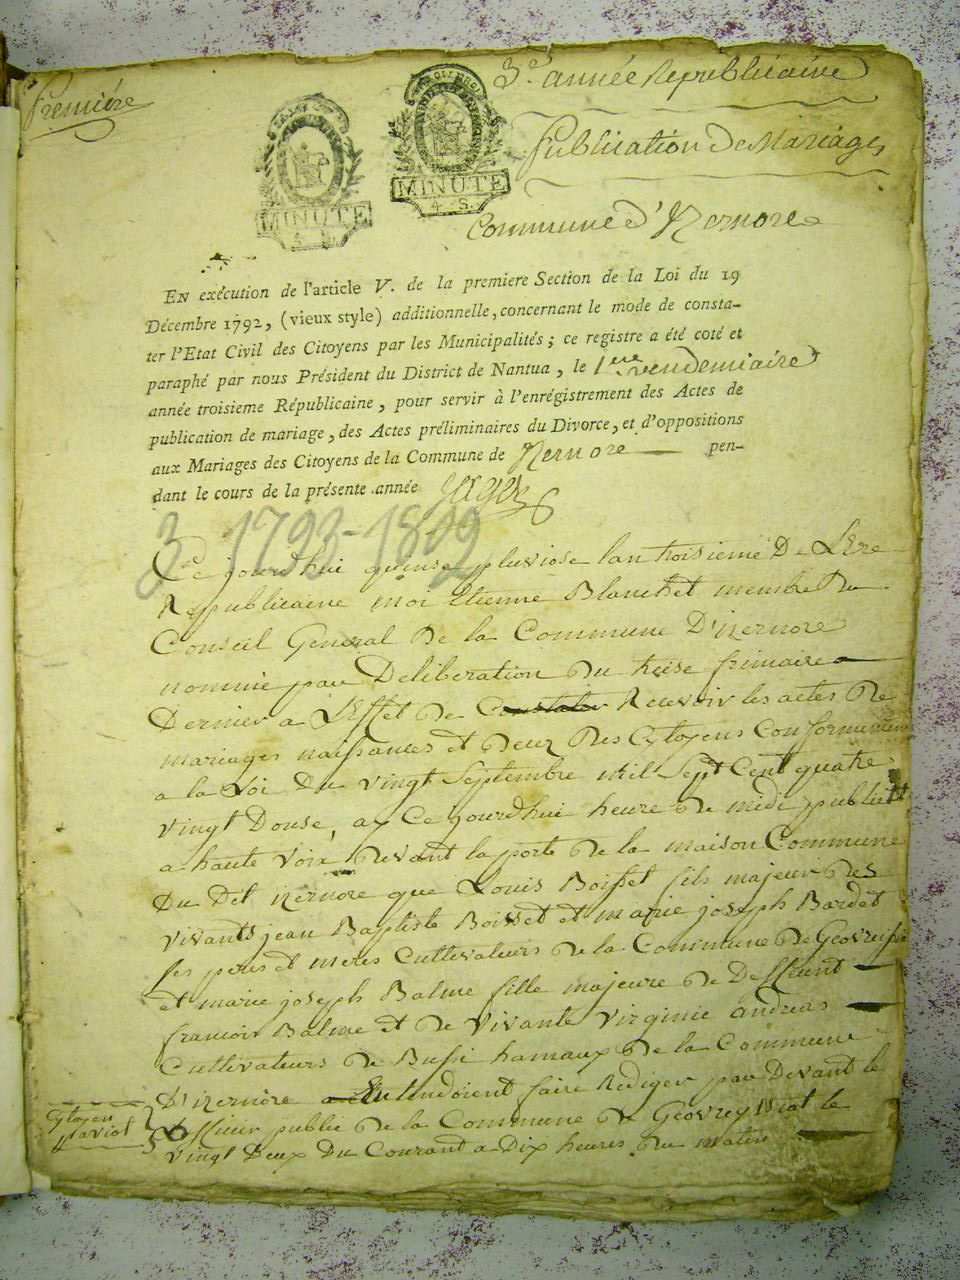 Premiére
3e. année Republicaine
Publication De Mariages
MINUTE
4. S.
MINUTE
Commune d'Izernore
En exécution de l'article V. de la premiere Section de la Loi du 19
Décembre 1792, (vieux style) additionnelle, concernant le mode de consta-
ter l'Etat Civil des Citoyens par les Municipalités; ce registre a été coté et
paraphé par nous Président du District de Nantua, le 1ere vendemiaire
année troisieme Républicaine, pour servir à l'enrégistrement des Actes de
publication de mariage, des Actes préliminaires du Divorce, et d'oppositions
aux Mariages des Citoyens de la Commune de Izernore pen-
dant le cours de la présente année
3 1793-1802
Ce jourd'hui quinse pluviose lan troisieme De L'Ere
Republicaine moi Etienne Blanchet membre Du
Conseil General De la Commune D'izernore
nommé par Deliberation du treise frimaire
Dernier a L'Effet de Constater Recevoir les actes De
mariages naissances et Decez Des Cytoyens Conformement
a la Loi Du vingt Septembre mil Sept Cent quatre
vingt Douse, ay Ce jourdhui heure de midi publié
a haute voix devant la porte de la maison Commune
Du Dit izernore que Louis Boisset fils majeur des
vivants jean Baptiste Boisset et marie joseph Bardet
ses peres et meres Cultivateurs de la Commune de Geovreissia
et marie joseph Balme fille majeure de Deffunt
francois Balme et de vivante virginie andreas
Cultivateurs de Bussi hamaux de la Commune
D'izernore Entendoient faire Rediger par Devant le
Cytoyen
Laviot
officier public de la Commune de Geovreyssiat le
vingt Deux Du Courant a Dix heures du matin